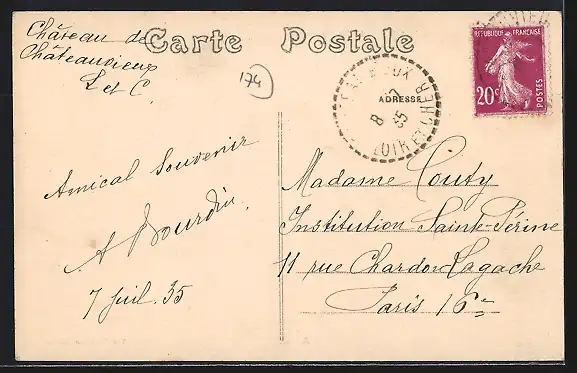 Château de
Châteauvieux
L et C.
Carte Postale
174
ADRESSE
8 35
LOIR ET CHER
REPUBLIQUE FRANÇAISE
20c
POSTES
Amical souvenir
A Bourdin.
7 Juil. 35
Madame Couty
Institution Sainte-Périne
11 rue Chardon-Lagache
Paris 16e